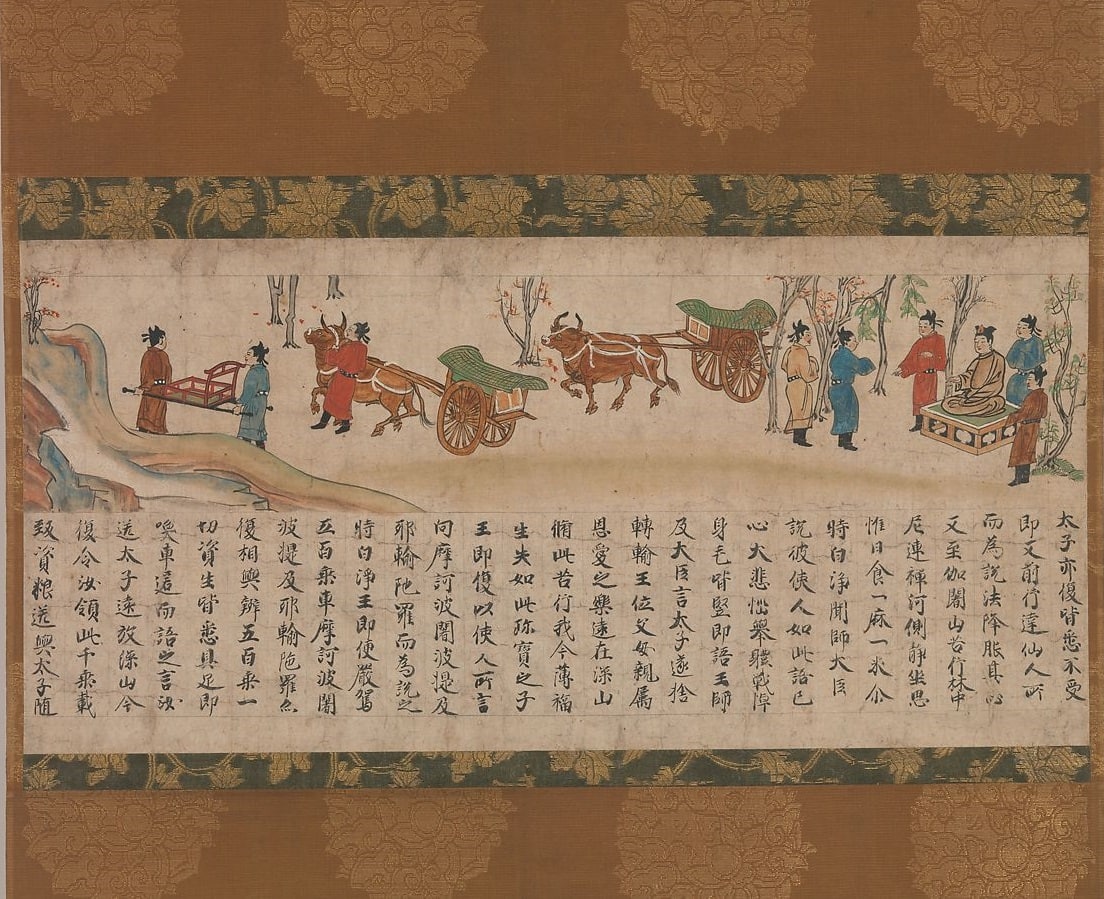 太子亦復皆悉不受
即又前行達仙人所
而為說法降脹其心
又至伽闍山苦行林中
尼連禪河側静坐思
惟日食一麻一米尒
時白淨聞師大臣
說彼使人如此語已
心大悲惱舉躰戰悼
身毛皆竪即語王師
及大臣言太子遂捨
轉輪王位父母親属
恩愛之樂遠在深山
脩此苦行我今薄福
生失如此珎寶之子
王即復以使人所言
向摩訶波闍波提及
耶輸陁羅而為說之
時白淨王即使嚴駕
五百乘車摩訶波闍
波提及耶輸陁羅亦
復相與辨五百乘一
切資生皆悉具足即
喚車匿而語之言汝
送太子遠放深山今
復令汝領此千乘載
致資粮送與太子随